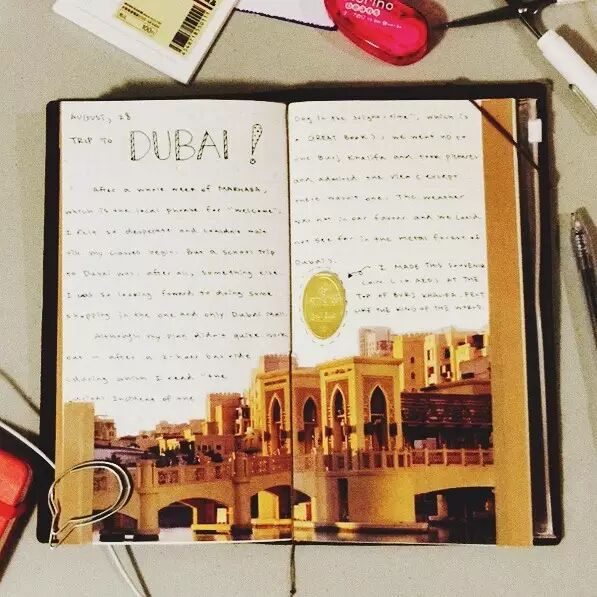 AUGUST, 28
TRIP TO DUBAI!
After a whole week of MARHABA,
which is the local phrase for "welcome",
I felt so desperate and couldn't wait
till my classes begin. But a school trip
to Dubai was, after all, something else.
I was so looking forward to doing some
shopping in the one and only Dubai Mall.
Although my plan didn't quite work
out - after a 2-hour bus ride
(during which I read "The
Curious Incident of the
Dog in the Night-time", which is
a GREAT Book), we went up to
the Burj Khalifa and took pictures
and admired the view (except
there wasn't one. The weather
was not in our favour and we could
not see far in the metal forest of
Dubai).
I MADE THIS SOUVENIR
COIN (10 AED) AT THE
TOP OF BURJ KHALIFA. FELT
LIKE THE KING OF THE WORLD